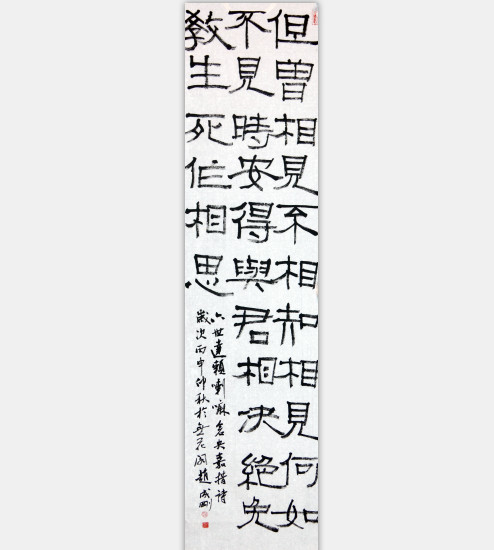 但曾相見不相知相見何如
不見時安得與君相決絕免
教生死作相思
六世達賴喇嘛倉央嘉措詩
歲次丙申仲秋於 趙成剛